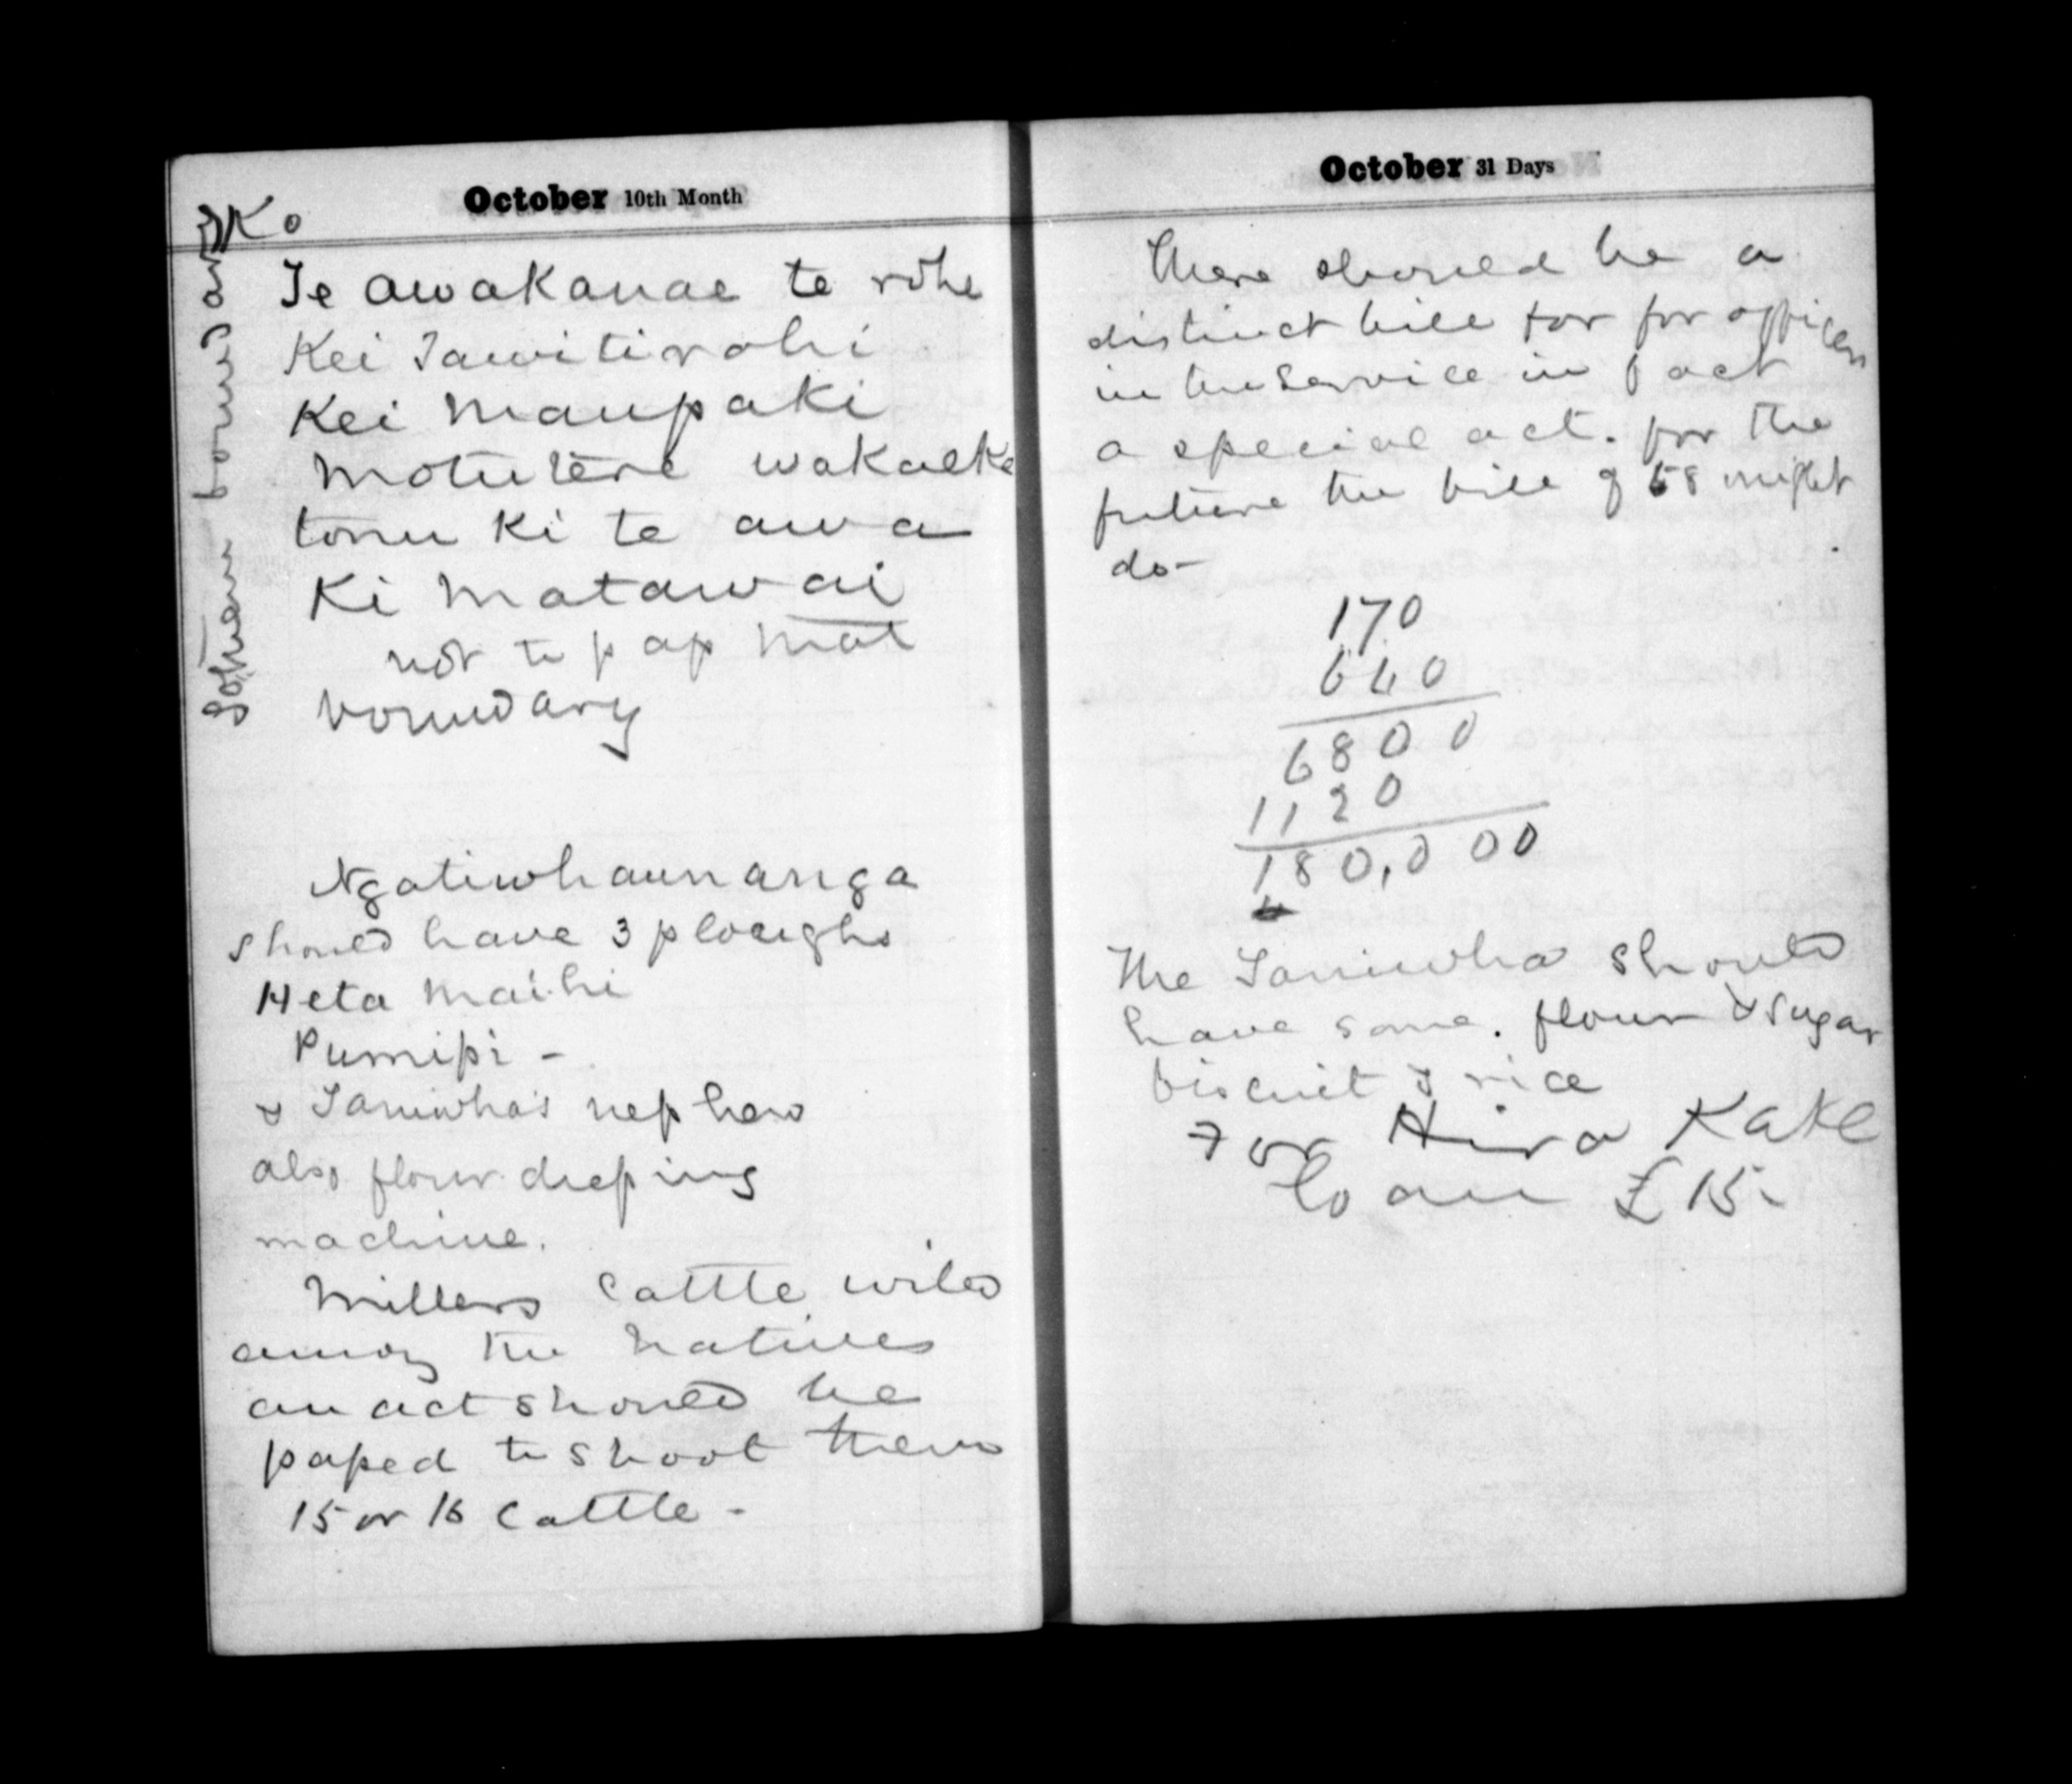 October 10th Month
Ko
Te awakanae te rohe
Kei Tawitirohi
Kei Maupaki
Motutere wakaeke
tonu ki te awa
Ki Matawai
not to pass that
boundary
Sothern boundary
Ngatiwhaunanga
should have 3 ploughs
Heta Maihi
Pumipi -
& Taniwha's nephew
also flour
machine.
Millers Cattle wild
among the natives
an act should be
passed to shoot them
15 or 16 Cattle -
October 31 Days
There should be a
distinct bill for for officers
in the Service in fact
a special act. for the
future the bill of 58 might
do -
170
640
6800
1120
180,000
The Taniwha should
have some. flour & sugar
biscuit & rice
For Hira Kake
loan £15